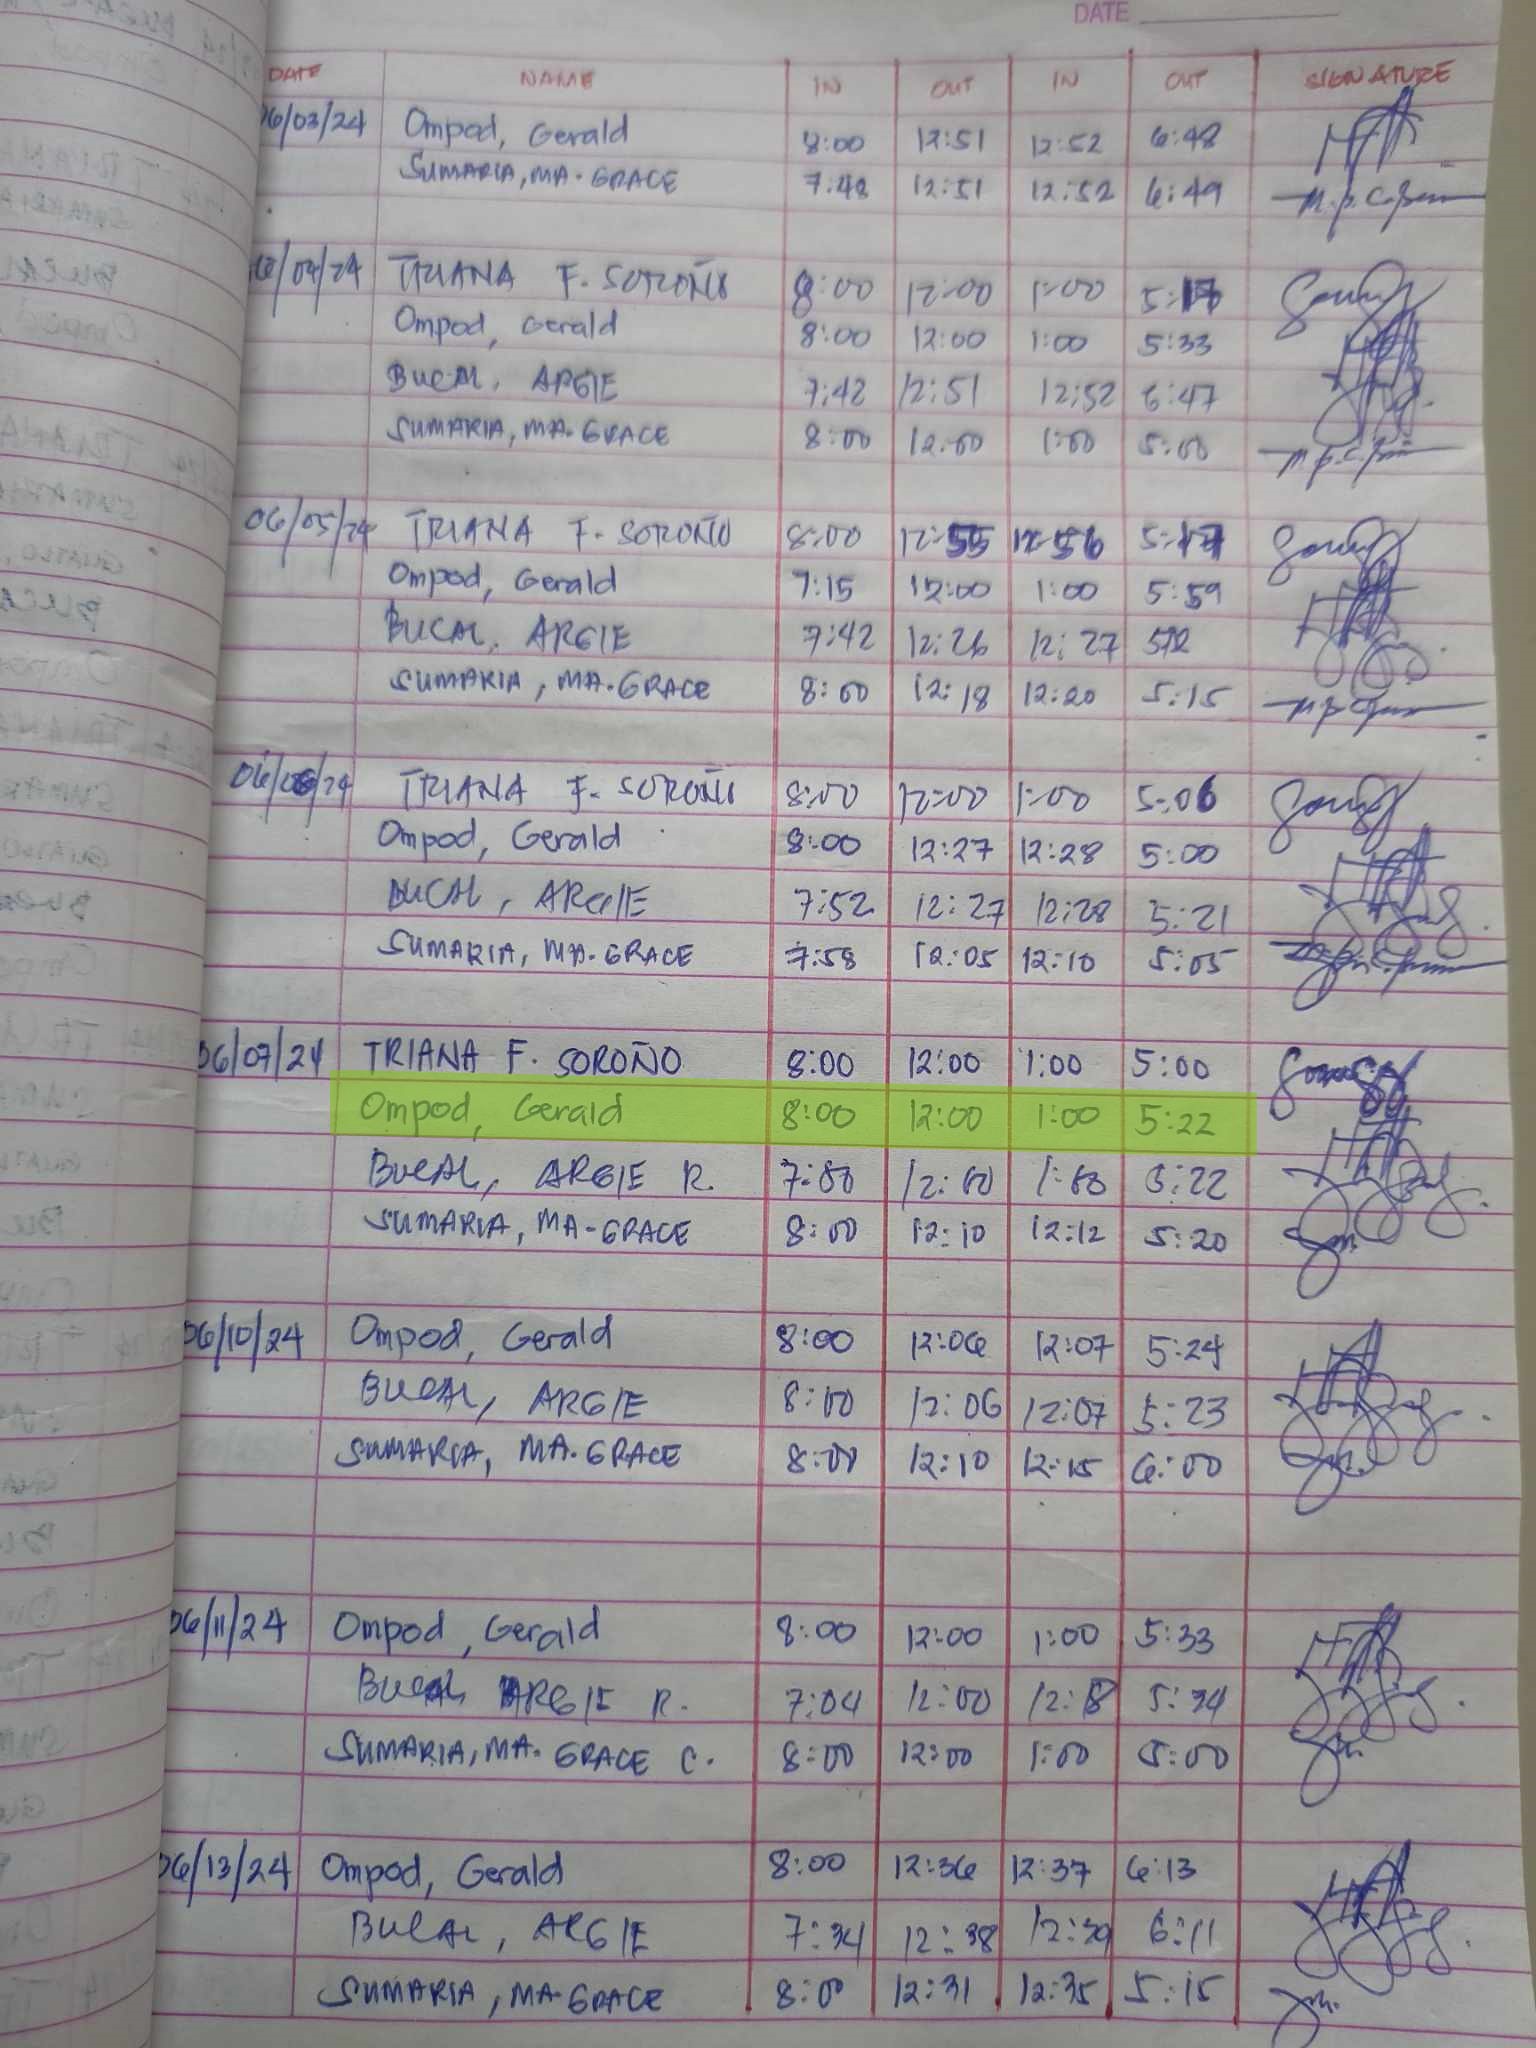 DATE
DATE NAME IN OUT IN OUT SIGNATURE
06/03/24 Ompod, Gerald 8:00 12:51 12:52 6:48
SUMARIA, MA. GRACE 7:48 12:51 12:52 6:49
06/04/24 TRIANA F. SOROÑO 8:00 12:00 1:00 5:17
Ompod, Gerald 8:00 12:00 1:00 5:33
BUCAL, ARGIE 7:42 12:51 12:52 6:47
SUMARIA, MA. GRACE 8:00 12:00 1:00 5:00
06/05/24 TRIANA F. SOROÑO 8:00 12:55 12:56 5:17
Ompod, Gerald 7:15 12:00 1:00 5:59
BUCAL, ARGIE 7:42 12:26 12:27 512
SUMARIA, MA. GRACE 8:00 12:18 12:20 5:15
06/06/24 TRIANA F. SOROÑO 8:00 12:00 1:00 5:06
Ompod, Gerald 8:00 12:27 12:28 5:00
BUCAL, ARGIE 7:52 12:27 12:28 5:21
SUMARIA, MA. GRACE 7:58 12:05 12:10 5:05
06/07/24 TRIANA F. SOROÑO 8:00 12:00 1:00 5:00
Ompod, Gerald 8:00 12:00 1:00 5:22
BUCAL, ARGIE R. 7:00 12:00 1:00 5:22
SUMARIA, MA-GRACE 8:00 12:10 12:12 5:20
06/10/24 Ompod, Gerald 8:00 12:06 12:07 5:24
BUCAL, ARGIE 8:00 12:06 12:07 5:23
SUMARIA, MA. GRACE 8:00 12:10 12:15 6:00
06/11/24 Ompod, Gerald 8:00 12:00 1:00 5:33
BUCAL ARGIE R. 7:04 12:00 12:18 5:34
SUMARIA, MA. GRACE C. 8:00 12:00 1:00 5:00
06/13/24 Ompod, Gerald 8:00 12:36 12:37 6:13
BUCAL, ARGIE 7:34 12:38 12:39 6:11
SUMARIA, MA-GRACE 8:00 12:31 12:35 5:15